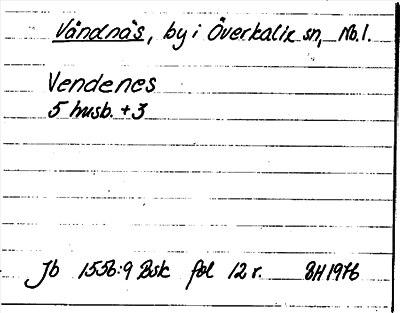 Vändnäs, by i Överkalix sn, Nb.l.
Vendenes
5 husb. + 3
Jb 1556:9 Bsk fol 12 r. BH 1976